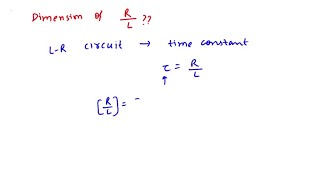 Dimension of R/L ??
L-R circuit → time constant
τ = R/L
↑
[R/L] = -